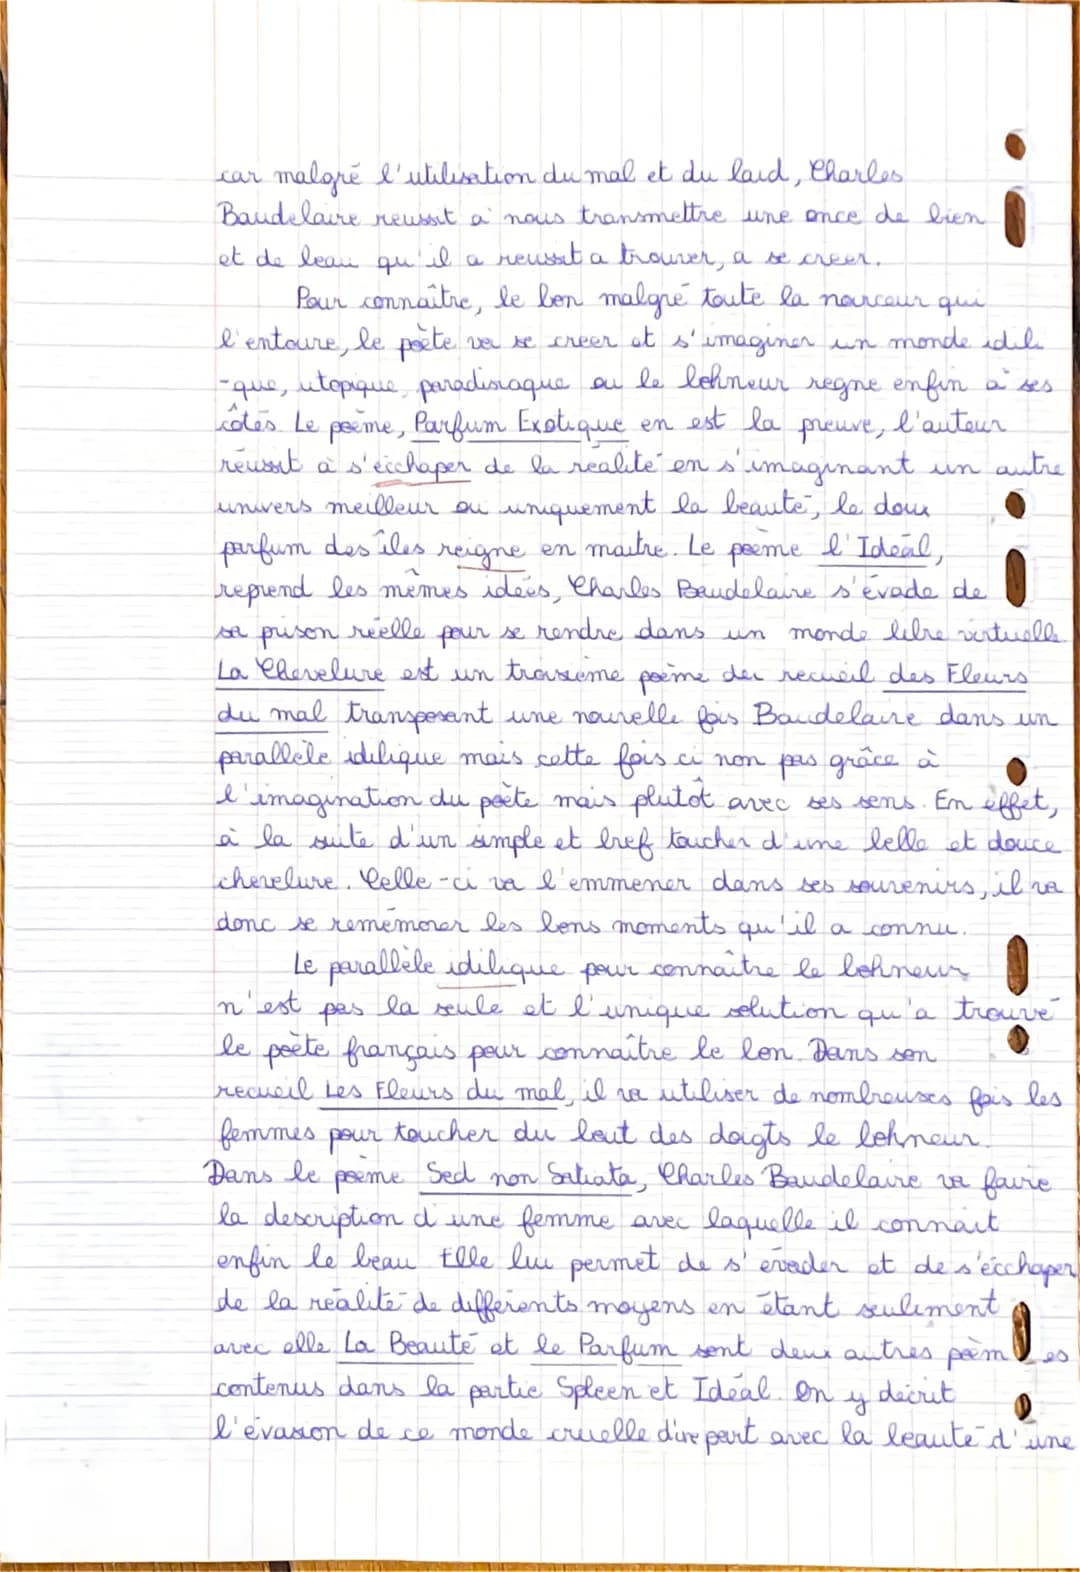 car malgré l'utilisation du mal et du laid, Charles
Baudelaire reussit à nous transmettre une once de bien
et de beau qu'il a reussit a trouver, a se creer.
Pour connaître, le bon malgré toute la noirceur qui
l'entoure, le poète va se creer et s'imaginer un monde idili
-que, utopique, paradisiaque ou le bohneur regne enfin à ses
côtés. Le poème, Parfum Exotique en est la preuve, l'auteur
réussit à s'écchaper de la réalité en s'imaginant un autre
univers meilleur ou uniquement la beauté, le doux
parfum des îles reigne en maitre. Le poème l'Idéal,
reprend les mêmes idées, Charles Baudelaire s'évade de
sa prison réelle pour se rendre dans un monde libre virtuelle
La Chevelure est un troisième poème du recueil des Fleurs
du mal transposant une nouvelle fois Baudelaire dans un
parallèle idilique mais cette fois ci non pas grâce à
l'imagination du poète mais plutôt avec ses sens. En effet,
à la suite d'un simple et bref toucher d'une belle et douce
chevelure. Celle-ci va l'emmener dans ses souvenirs, il va
donc se remémorer les bons moments qu'il a connu.
Le parallèle idilique pour connaître le bohneur
n'est pas la seule et l'unique solution qu'a trouvé
le poète français pour connaître le bon. Dans son
recueil Les Fleurs du mal, il va utiliser de nombreuses fois les
femmes pour toucher du bout des doigts le bohneur.
Dans le poème Sed non Satiata, Charles Baudelaire va faire
la description d'une femme avec laquelle il connait
enfin le beau. Elle lui permet de s'évader et de s'écchaper
de la réalité de différents moyens en étant seulement
avec elle. La Beauté et le Parfum sont deux autres poèmes
contenus dans la partie Spleen et Idéal. On y décrit
l'évasion de ce monde cruelle d'une part avec la beauté d'une